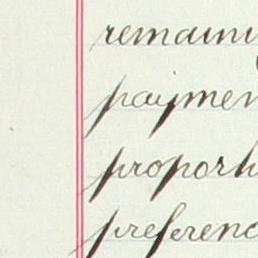 remaini
paymen
proporti
preferenc